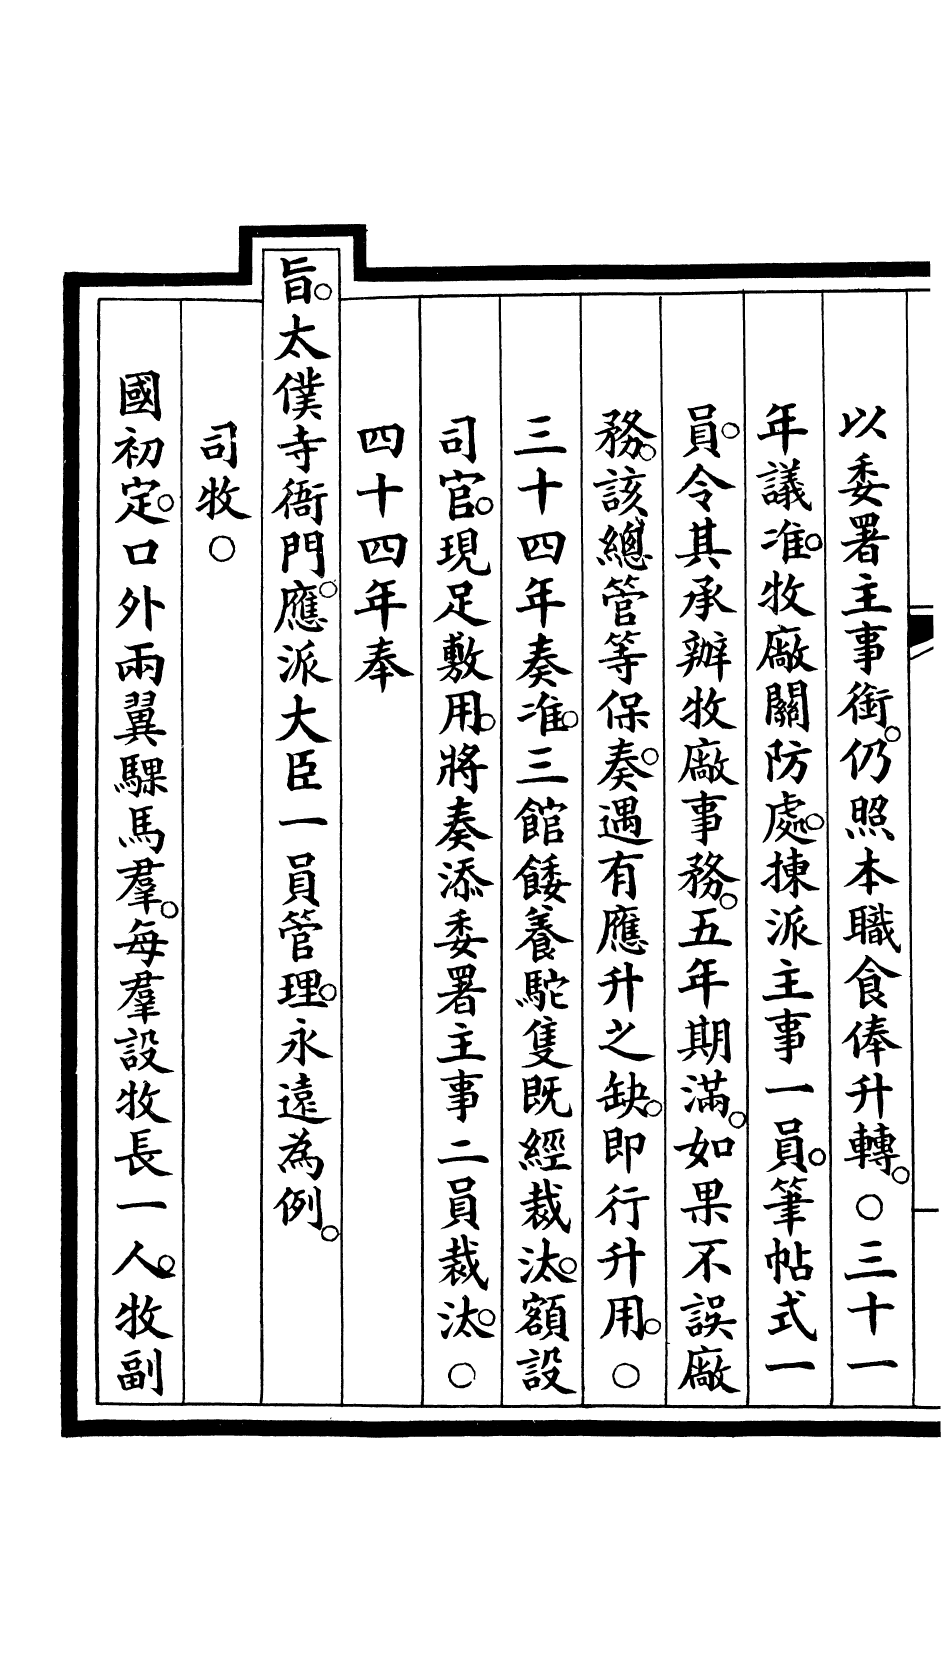 以委署主事銜。仍照本職食俸升轉。○三十一
年議准。牧廠關防處。揀派主事一員。筆帖式一
員。令其承辦牧廠事務。五年期滿。如果不誤廠
務。該總管等保奏。遇有應升之缺。即行升用。○
三十四年奏准。三館餧養駝隻既經裁汰。額設
司官。現足敷用。將奏添委署主事二員裁汰。○
四十四年奉
旨。太僕寺衙門。應派大臣一員管理。永遠為例。
司牧○
國初定。口外兩翼騍馬羣。每羣設牧長一人。牧副